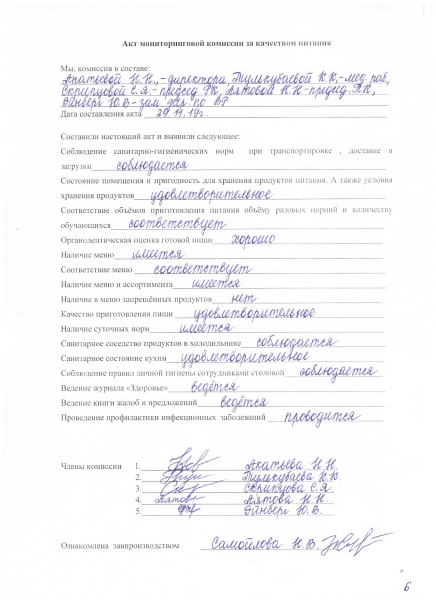 Акт мониторинговой комиссии за качеством питания
Мы, комиссия в составе:
Апатьевой Н.Н.,-директора, Тулькубаевой К.К,-мед. раб,
Скрипцовой С.Я.- председ РК, Аятовой Н.Н-председ. ПК,
Эйнберг Ю.В-зам дир по ВР
Дата составления акта 29.11.19г.
Составили настоящий акт и выявили следующее:
Соблюдение санитарно-гигиенических норм при транспортировке , доставке и
загрузки соблюдается
Состояние помещения и пригодность для хранения продуктов питания. А также условия
хранения продуктов удовлетворительное
Соответствие объёмов приготовления питания объёму разовых порций и количеству
обучающихся соответствует
Органолептическая оценка готовой пищи хорошо
Наличие меню имеется
Соответствие меню соответствует
Наличие меню и ассортимента имеется
Наличие в меню запрещённых продуктов нет
Качество приготовления пищи удовлетворительное
Наличие суточных норм имеется
Санитарное соседство продуктов в холодильнике соблюдается
Санитарное состояние кухни удовлетворительное
Соблюдение правил личной гигиены сотрудниками столовой соблюдается
Ведение журнала «Здоровье» ведётся
Ведение книги жалоб и предложений ведётся
Проведение профилактики инфекционных заболеваний проводится
Члены комиссии 1. Апатьева Н.Н.
2. Тулькубаева К.К.
3. Скрипцова С.Я
4. Аятова Аятова Н.Н.
5. Эйнберг Ю.В.
Ознакомлена завпроизводством Самойлова Н.В.
6